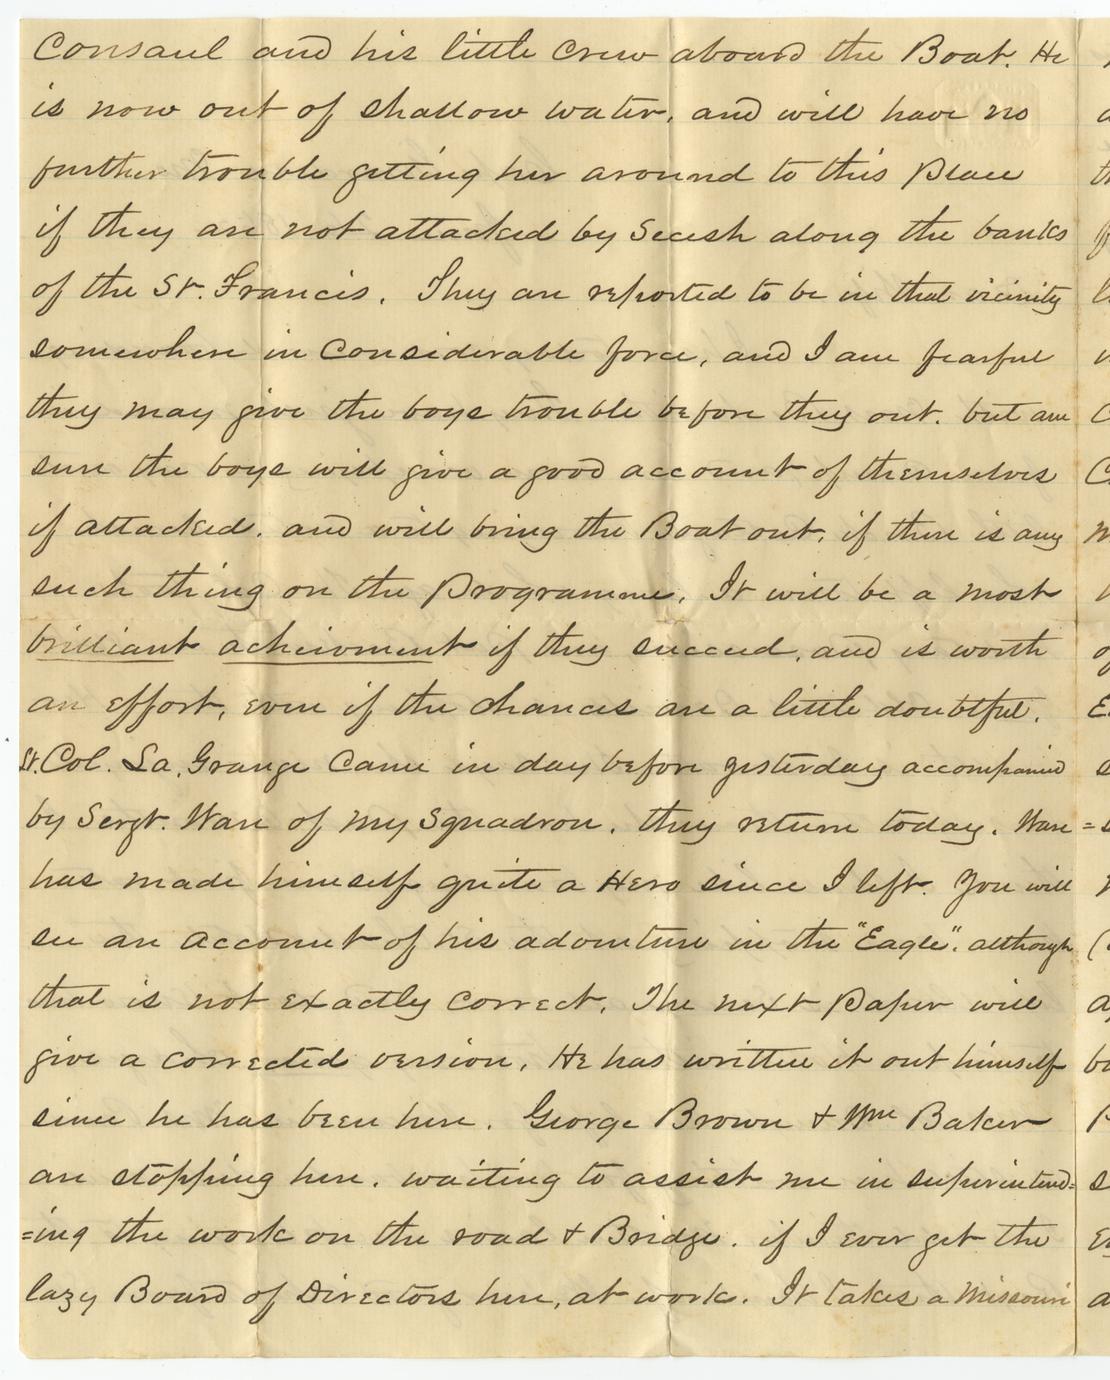 Consaul and his little crew aboard the Boat. He
is now out of shallow water, and will have no
further trouble getting her around to this Place
if they are not attacked by Secesh along the banks
of the St. Francis. They are reported to be in that vicinity
somewhere in considerable force, and I am fearful
they may give the boys trouble before they out. but am
sure the boys will give a good account of themselves
if attacked. and will bring the Boat out, if there is any
such thing on the Programme. It will be a most
brilliant achievment if they succeed, and is worth
an effort, even if the chances are a little doubtful.
Lt. Col. La. Grange Came in day before yesterday accompanied
by Sergt. Ware of my Squadron. they return today. Ware
has made himself quite a Hero since I left. You will
see an account of his adventure in the "Eagle". although
that is not exactly correct. The next Paper will
give a corrected version. He has written it out himself
since he has been here. George Brown & Wm Baker
are stopping here. waiting to assist me in superintend=
=ing the work on the road & Bridge. if I ever get the
lazy Board of Directors here, at work. It takes a Missouri